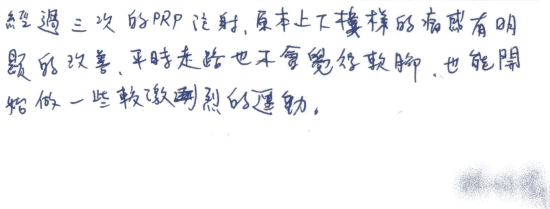 經過三次的PRP注射,原本上下樓梯的痛感有明
顯的改善,平時走路也不會覺得軟腳,也能開
始做一些較激烈的運動。